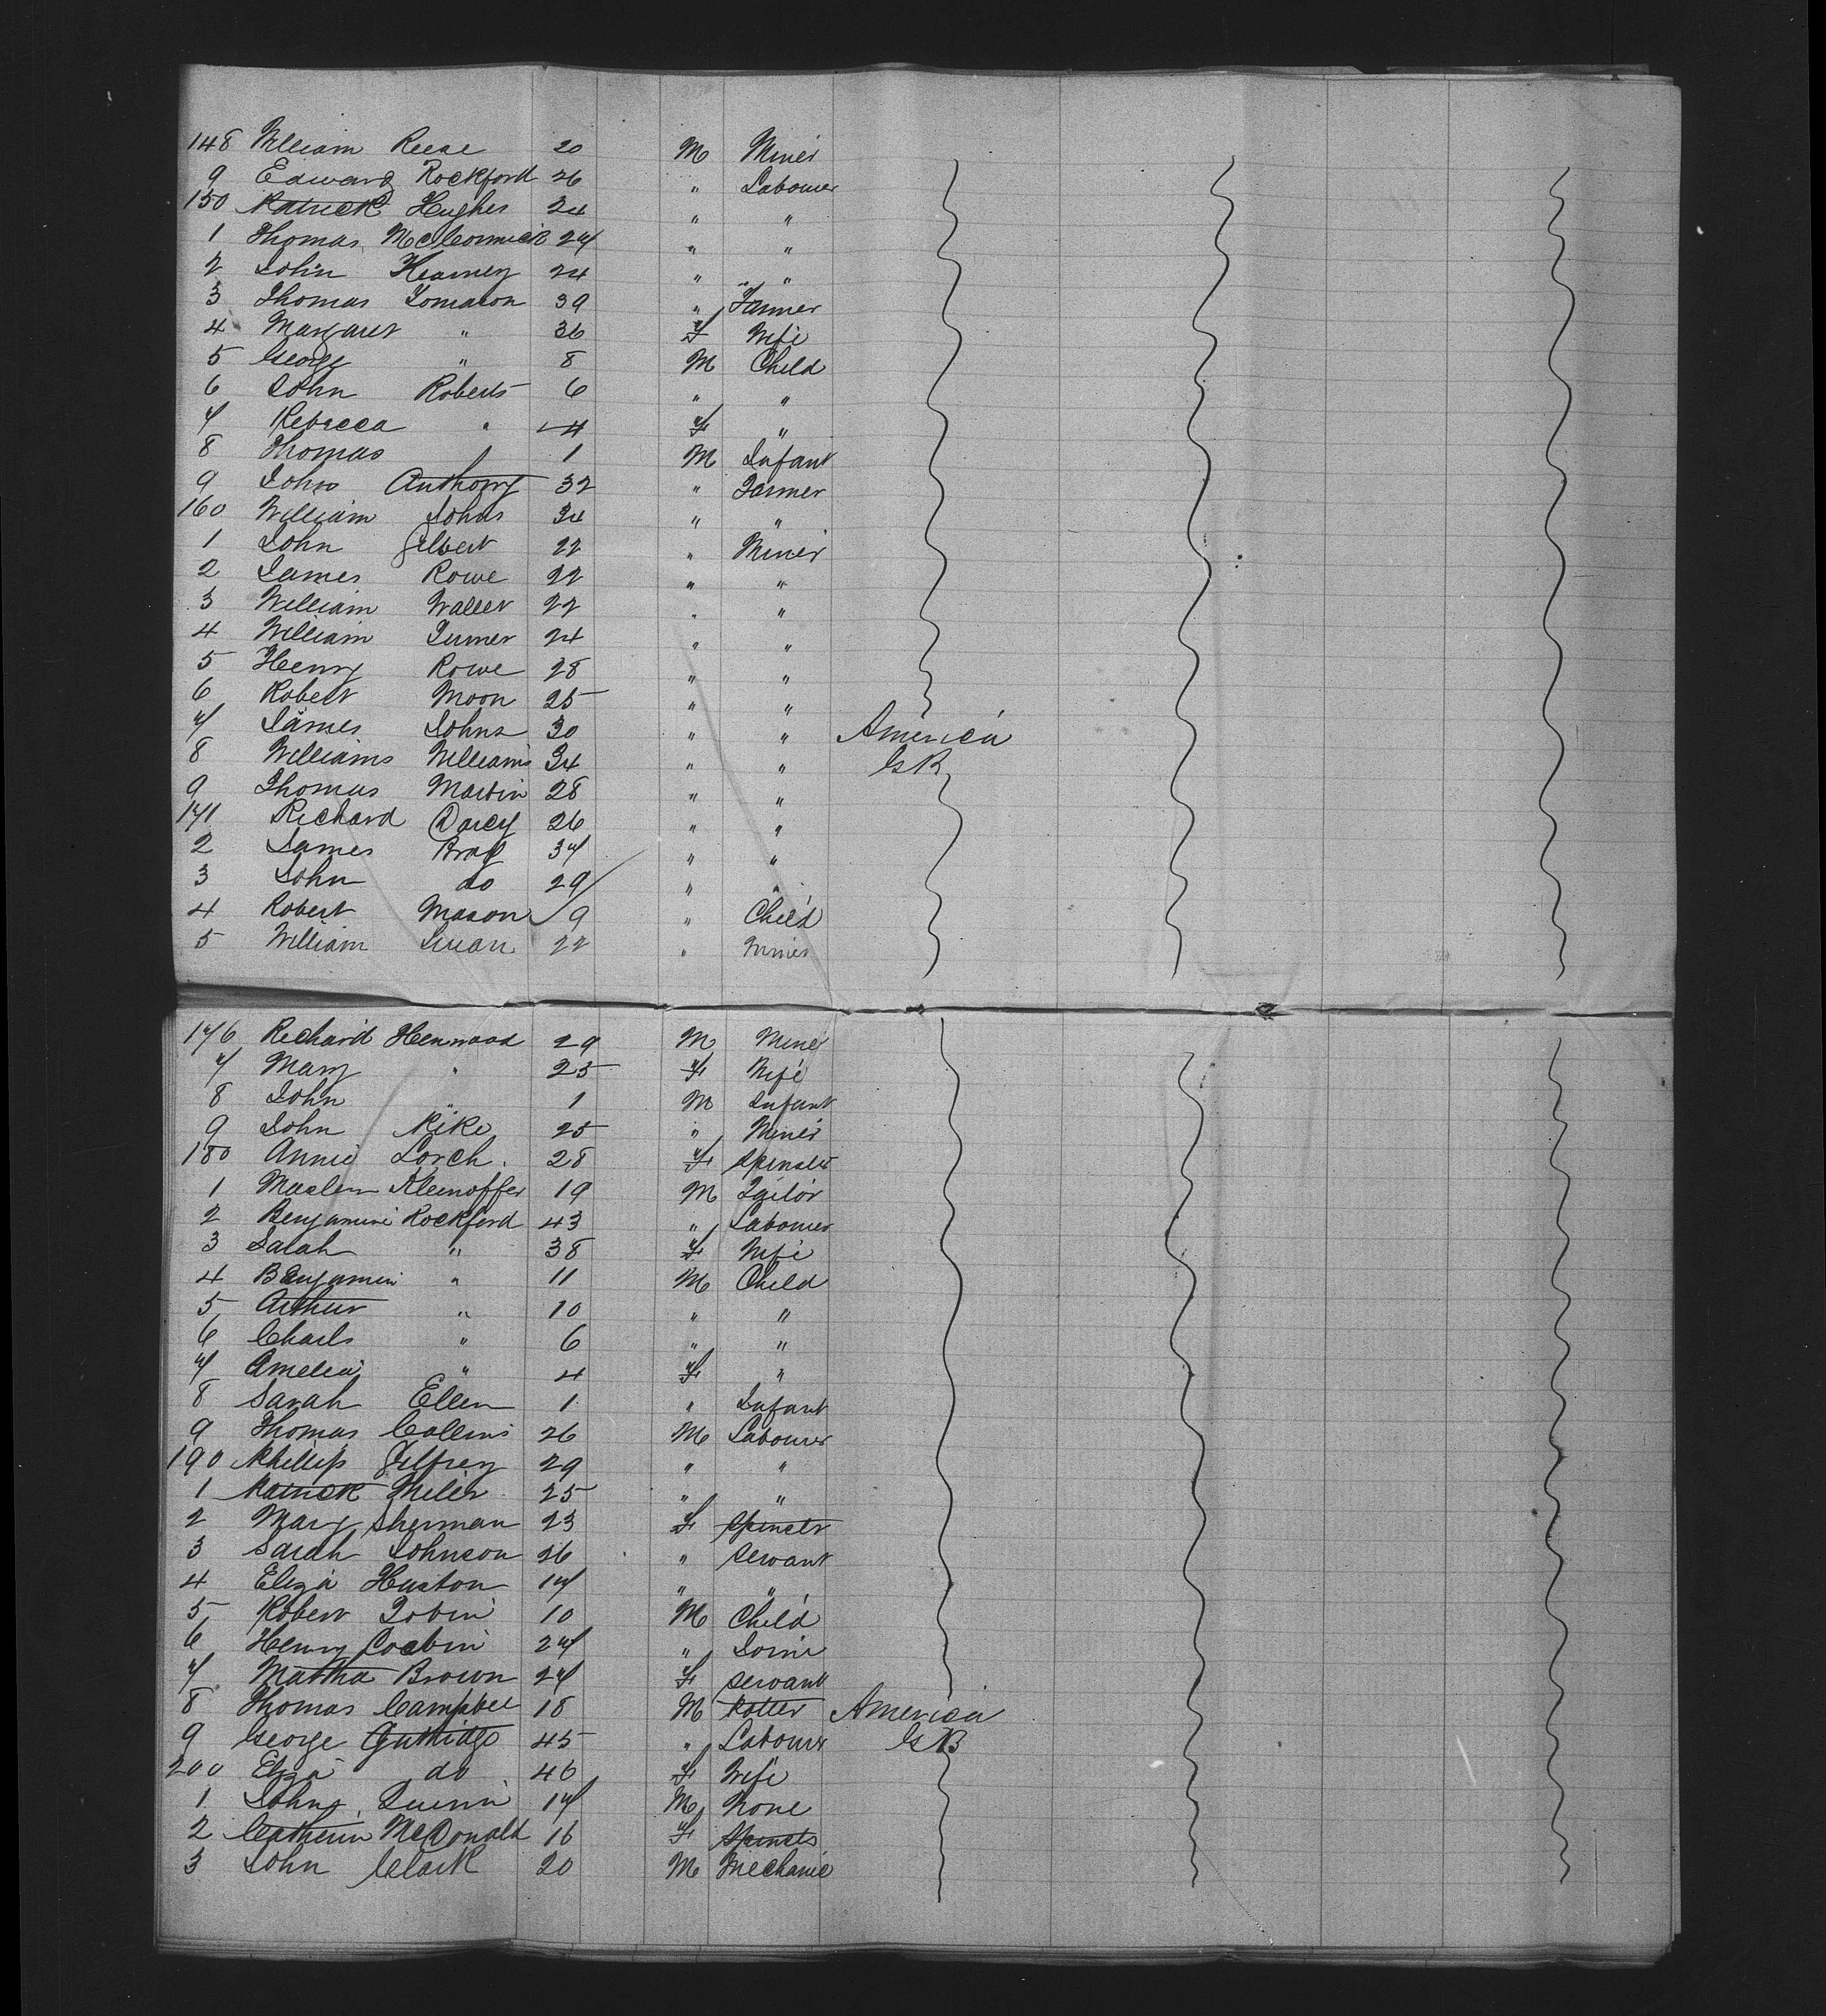 148 William Reese 20 M Miner
9 Edward Rockford 26 " Labourer
150 Patrick Hughes 24 " "
1 Thomas McCormick 27 " "
2 John Kearney 24 " "
3 Thomas Tomason 39 " Farmer
4 Margaret " 36 F Wife
5 George " 8 M Child
6 John Roberts 6 " "
7 Rebecca " 4 F "
8 Thomas " 1 M Infant
9 John Anthony 32 " Farmer
160 William Johns 34 " "
1 John Gilbert 22 " Miner
2 James Rowe 22 " "
3 William Waller 22 " "
4 William Turner 24 " "
5 Henry Rowe 28 " "
6 Robert Moon 25 " "
7 James Johns 30 " " America
8 Williams Williams 34 " " GB
9 Thomas Martin 28 " "
171 Richard Darcy 26 " "
2 James Bray 37 " "
3 John do 29 " "
4 Robert Mason 9 " Child
5 William 22 " Miner
176 Richard Henwood 29 M Miner
7 Mary " 25 F Wife
8 John " 1 M Infant
9 John Pike 25 " Miner
180 Annie Lorch 28 F Spinster
1 19 M Tailor
2 Benjamin Rockford 43 " Labourer
3 Sarah " 38 F Wife
4 Benjamin " 11 M Child
5 Arthur " 10 " "
6 Charls " 6 " "
7 Amelia " 4 F "
8 Sarah Ellen 1 " Infant
9 Thomas Collins 26 M Labourer
190 Phillip 29 " "
1 Patrick Miler 25 " "
2 Mary Sherman 23 F Spinster
3 Sarah Johnson 26 " Servant
4 Eliza Huston 17 " "
5 Robert Tobin 10 M Child
6 Henry Cosbin 27 "
7 Martha Brown 27 F Servant
8 Thomas Campbell 18 M Potter America
9 George Guthidge 45 " Labourer GB
200 Eliza do 46 F Wife
1 John Quinn 17 M None
2 Catherin McDonald 16 F Spinster
3 John Clark 20 M Mechanic